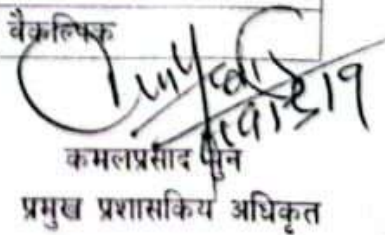 वैकल्पिक
कमलप्रसाद पुन
प्रमुख प्रशासकिय अधिकृत